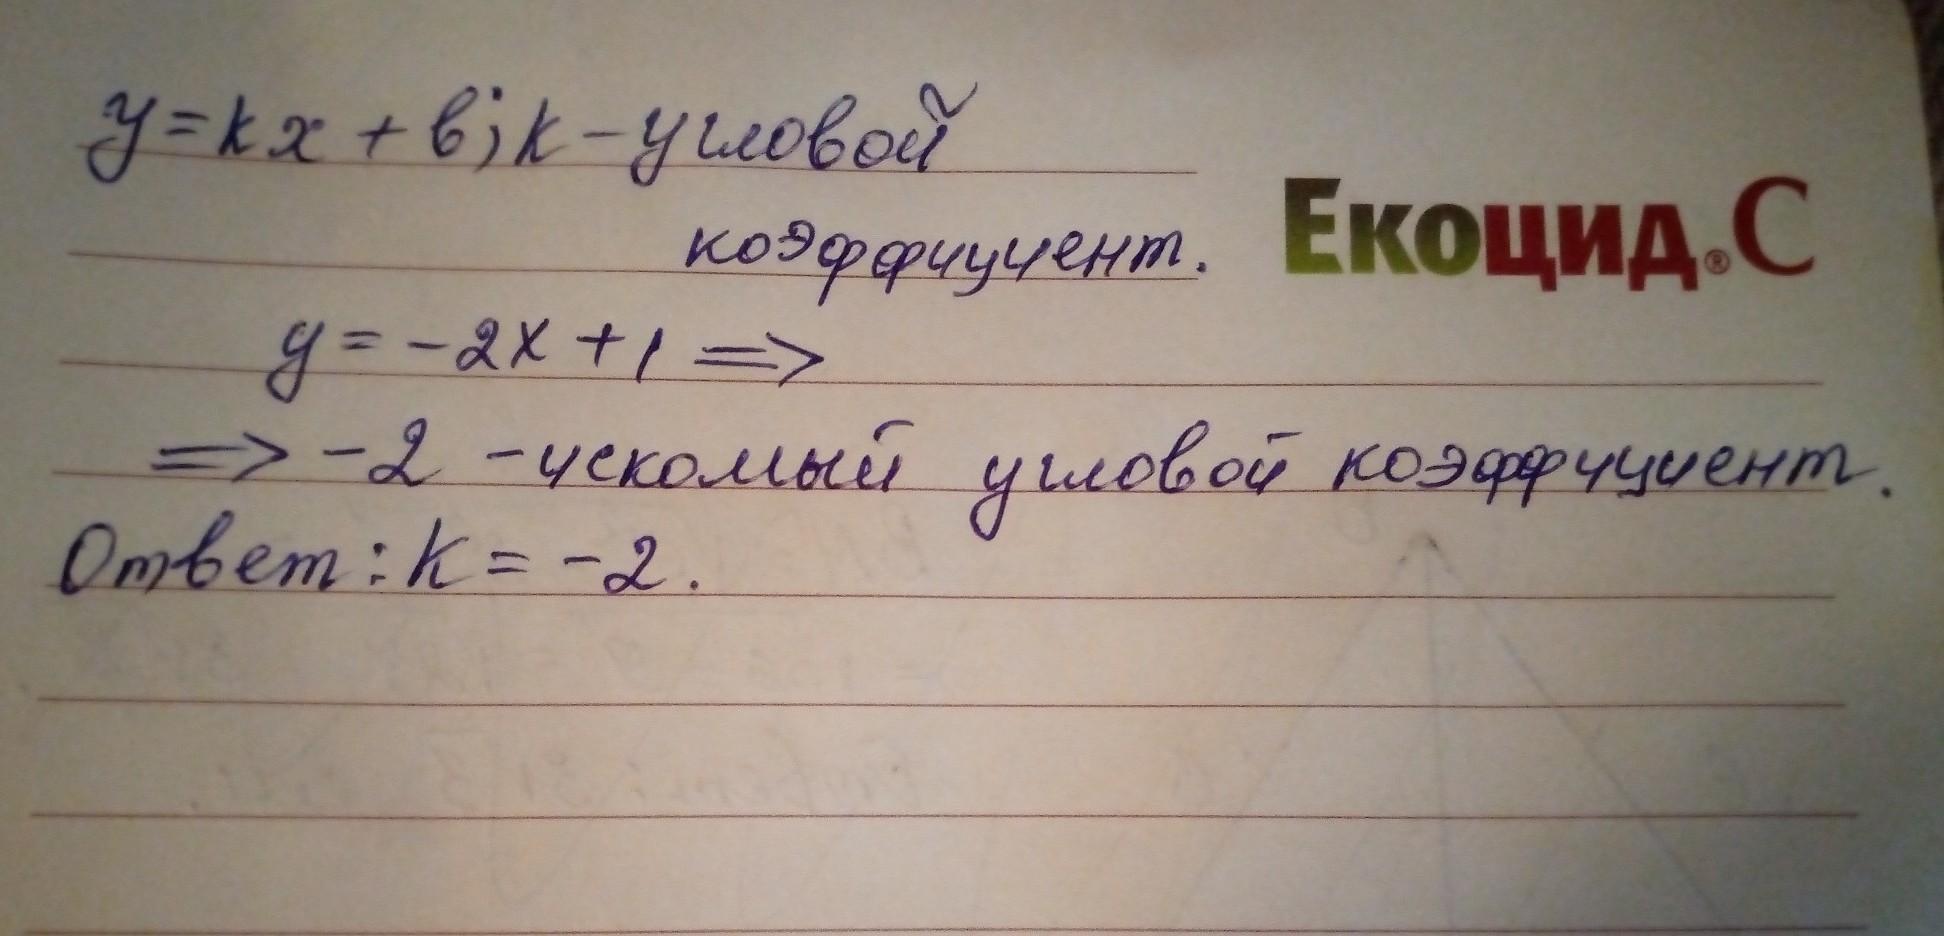 y = kx + в; k - угловой
коэффициент.
Екоцид® С
y = -2x + 1 =>
=> -2 - искомый угловой коэффициент.
Ответ: k = -2.